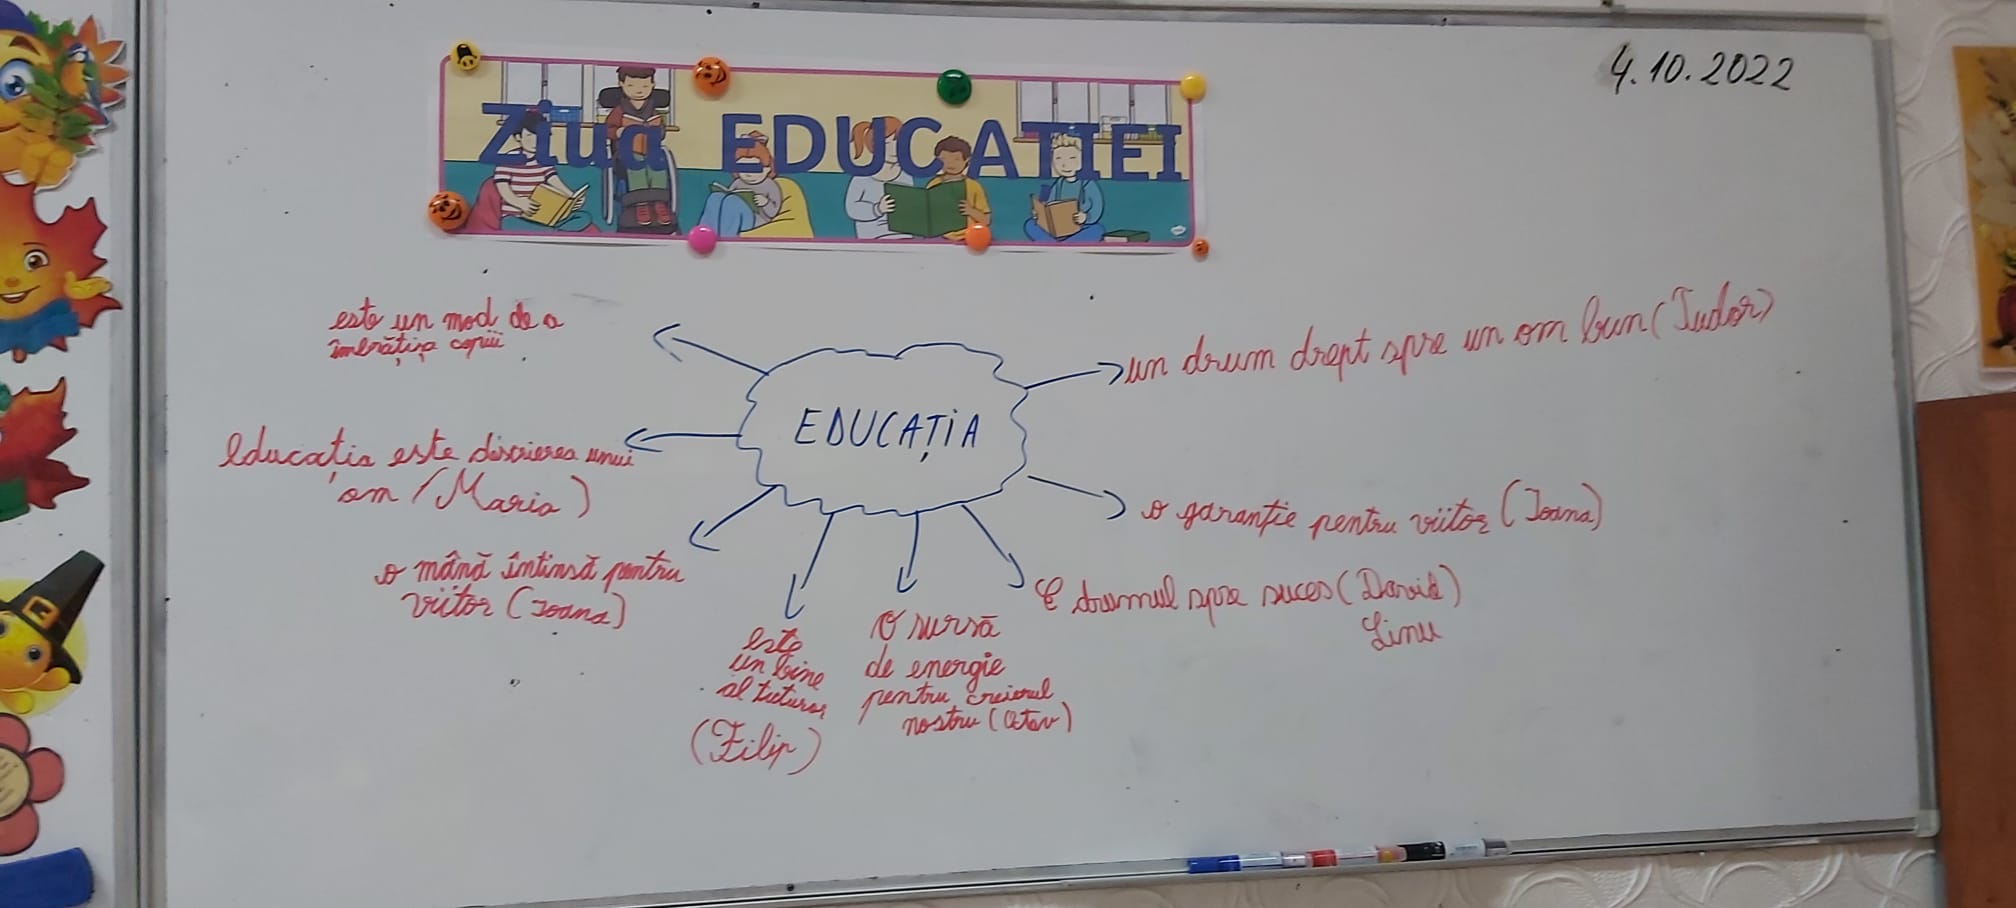 4.10.2022
Ziua EDUCAȚIEI
este un mod de a
îmbrățișa copiii
EDUCAȚIA
un drum drept spre un om bun (Tudor)
educația este discrierea unui
om (Maria)
o garanție pentru viitor (Ioana)
o mână întinsă pentru
viitor (Ioana)
este
un bine
al tuturor
(Filip)
O sursă
de energie
pentru creierul
nostru (Otav)
E drumul spre suces (David)